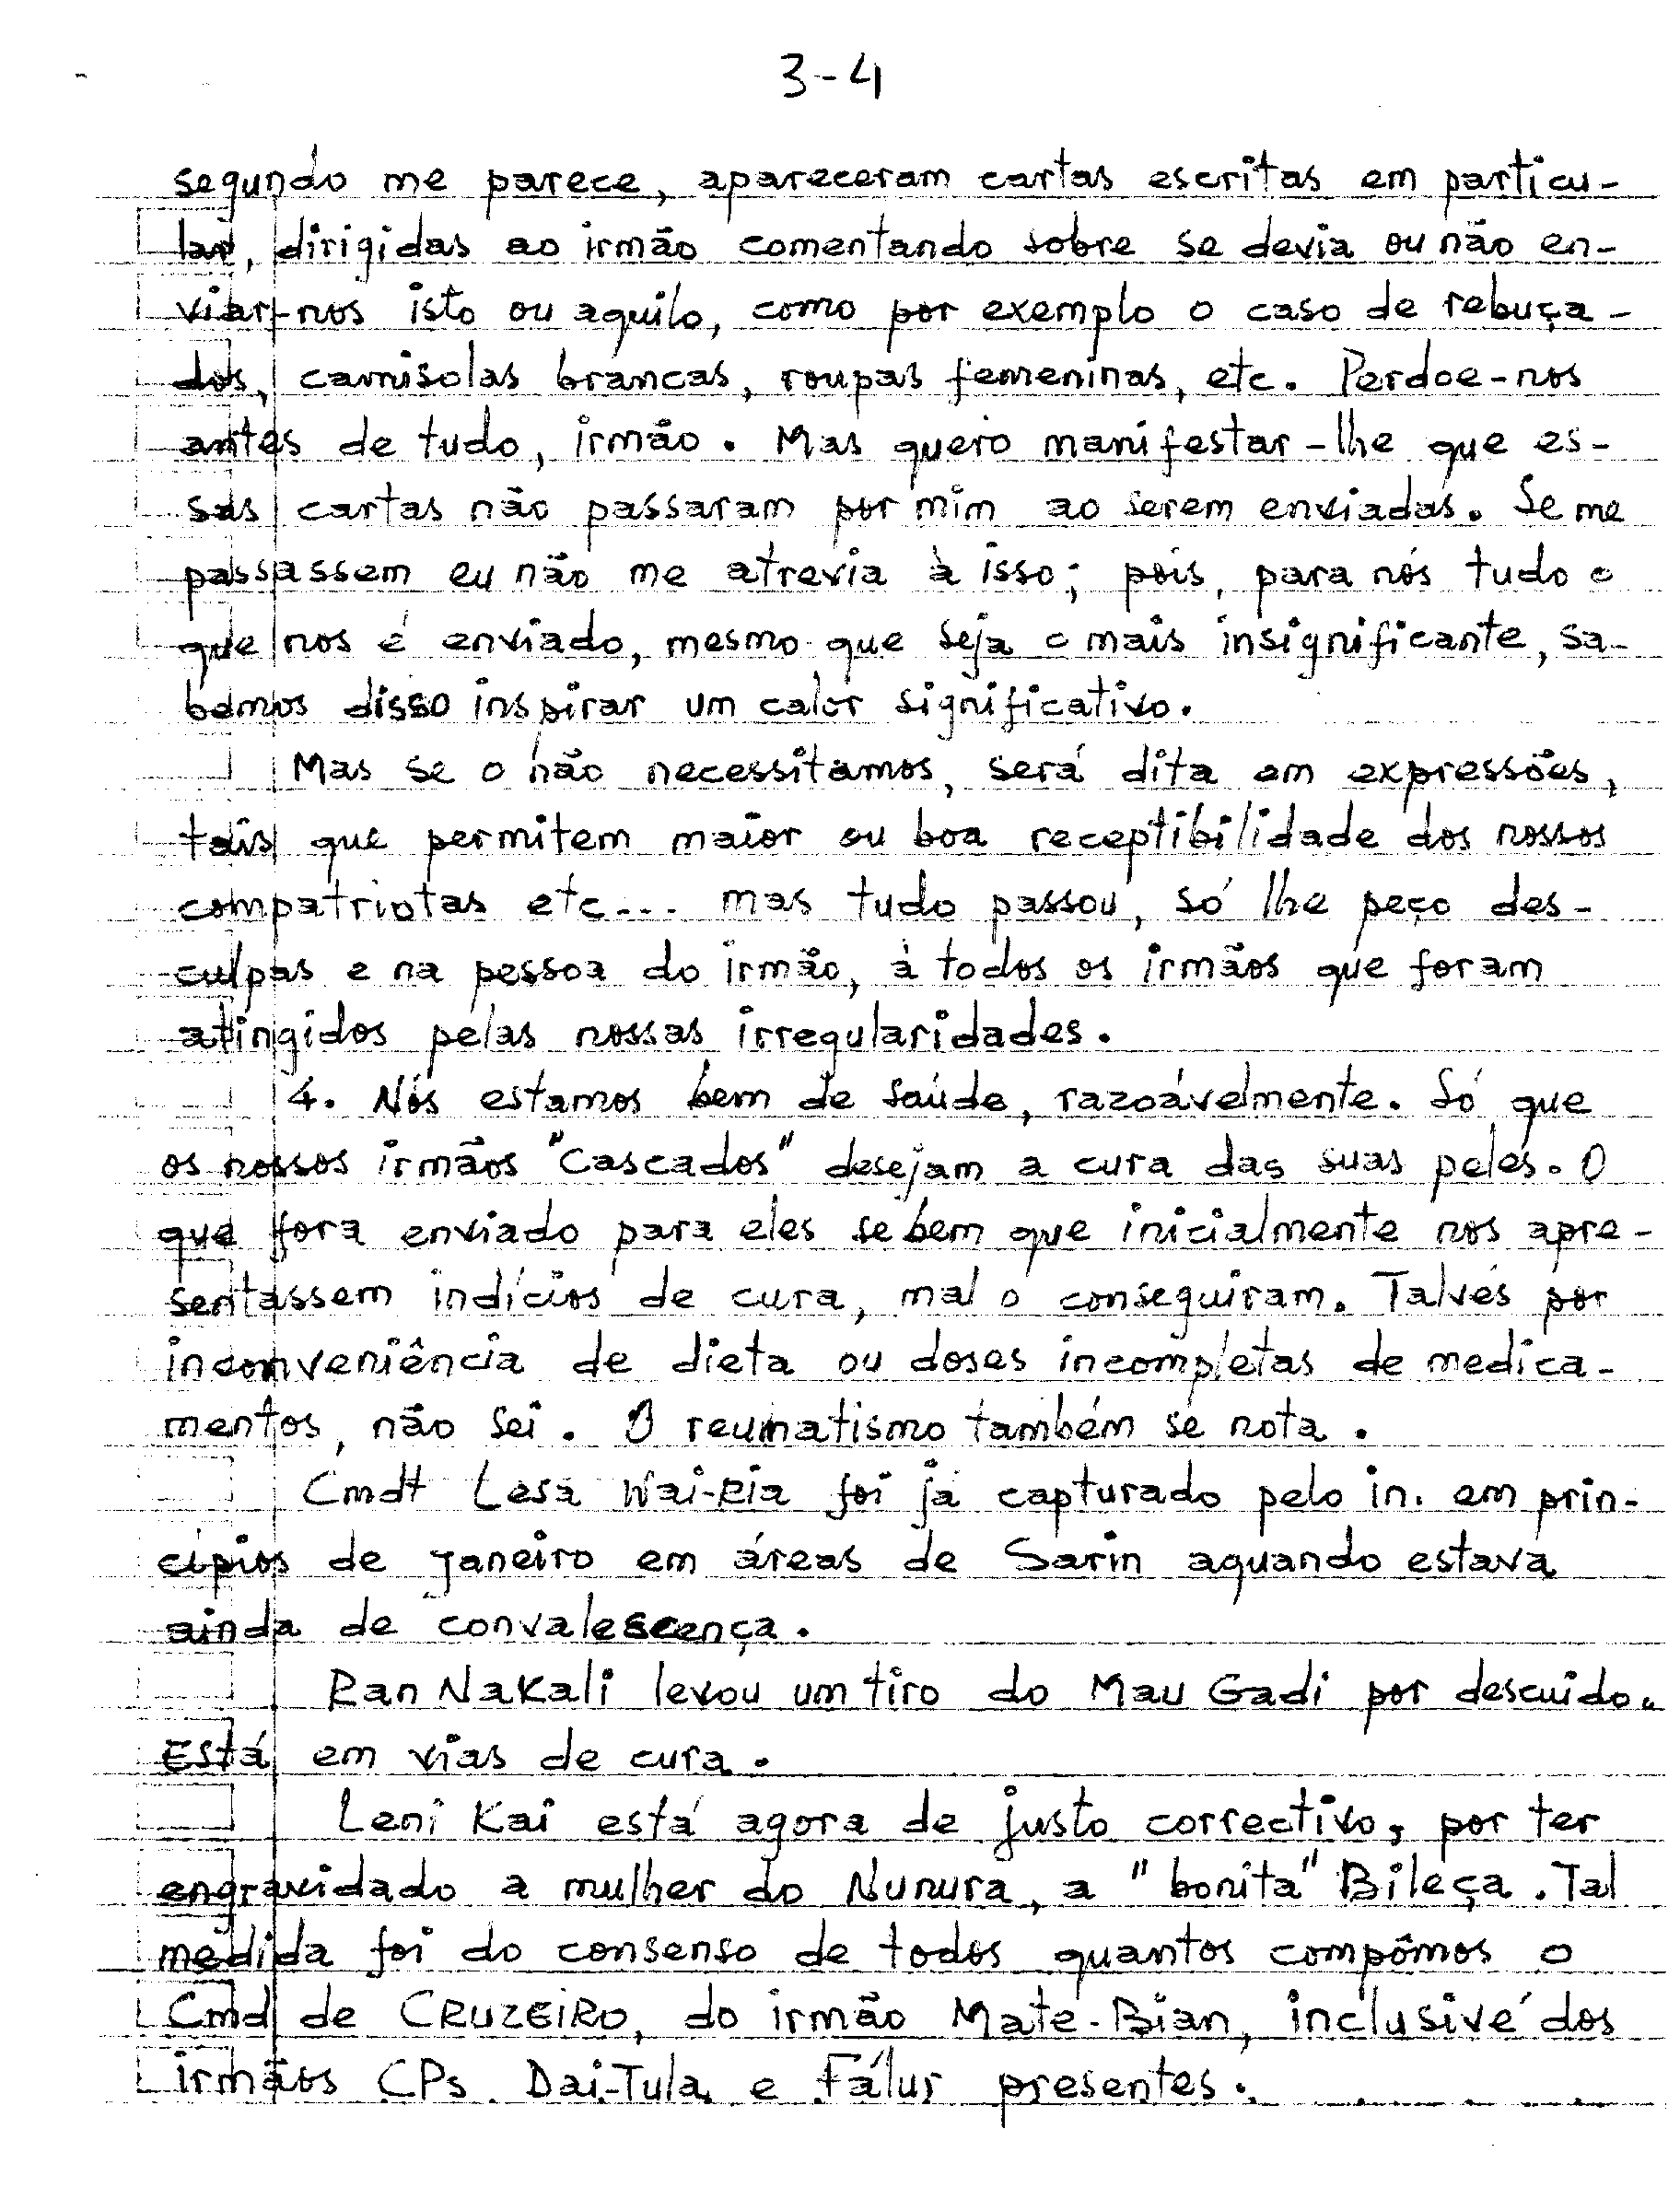 3-4
segundo me parece, apareceram cartas escritas em particu-
lar, dirigidas ao irmão comentando sobre se devia ou não en-
viar-nos isto ou aquilo, como por exemplo o caso de rebuça-
dos, camisolas brancas, roupas femeninas, etc. Perdoe-nos
antes de tudo, irmão. Mas quero manifestar-lhe que es-
sas cartas não passaram por mim ao serem enviadas. Se me
passassem eu não me atrevia à isso; pois, para nós tudo o
que nos é enviado, mesmo que seja o mais insignificante, sa-
bemos disso inspirar um calor significativo.
Mas se o não necessitamos, será dita em expressões,
tais que permitem maior ou boa receptibilidade dos nossos
compatriotas etc... mas tudo passou, só lhe peço des-
culpas e na pessoa do irmão, à todos os irmãos que foram
atingidos pelas nossas irregularidades.
4. Nós estamos bem de saúde, razoávelmente. Só que
os nossos irmãos "Cascados" desejam a cura das suas peles. O
que fora enviado para eles se bem que inicialmente nos apre-
sentassem indícios de cura, mal o conseguiram. Talvés por
inconveniência de dieta ou doses incompletas de medica-
mentos, não sei. O reumatismo também se nota.
Cmdt Lesa Wai-Ria foi já capturado pelo in. em prin-
cípios de janeiro em áreas de Sarin aquando estava
ainda de convalescença.
Ran NaKali levou um tiro do Mau Gadi por descuido.
Está em vias de cura.
Leni Kai está agora de justo correctivo, por ter
engravidado a mulher do Nunura, a "bonita" Bileça. Tal
medida foi do consenso de todos quantos compômos o
Cmd de CRUZEIRO, do irmão Mate-Bian, inclusivé dos
irmãos CPs Dai-Tula e Fálur presentes.